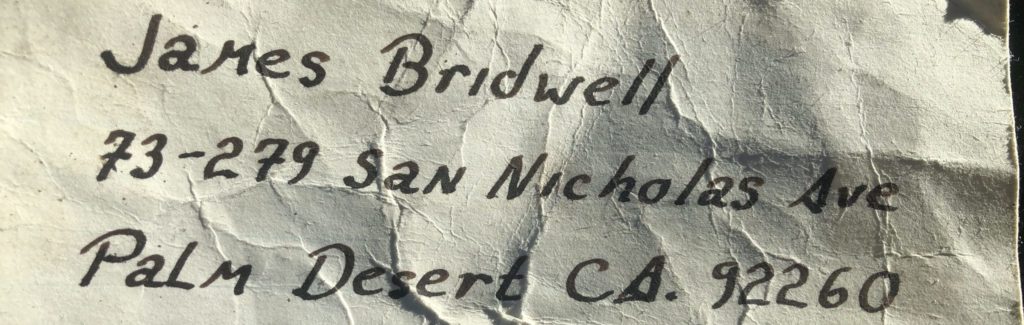 James Bridwell
73-279 San Nicholas Ave
Palm Desert CA. 92260